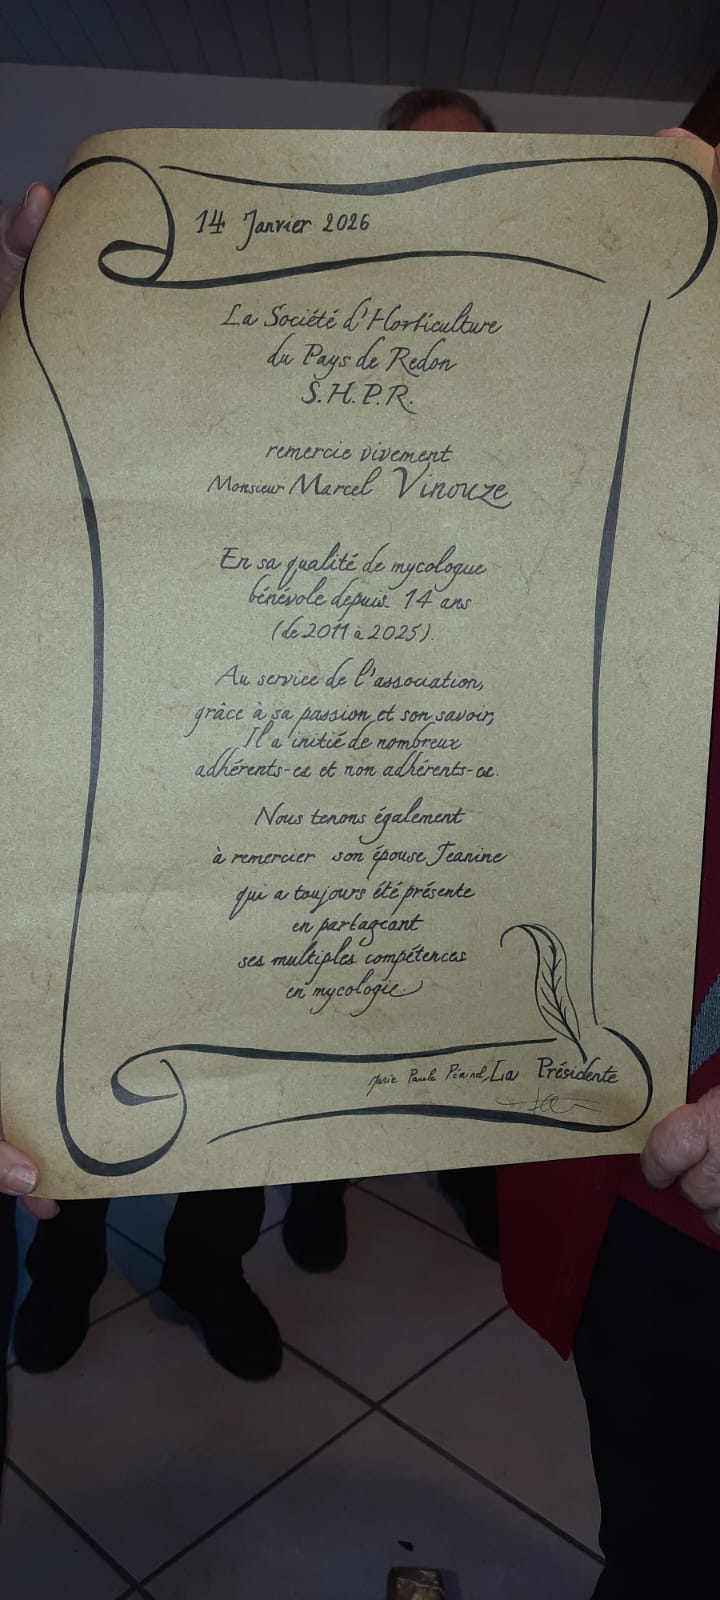 14 Janvier 2026
La Société d'Horticulture
du Pays de Redon
S.H.P.R.
remercie vivement
Monsieur Marcel Vinouze
En sa qualité de mycologue
bénévole depuis 14 ans
(de 2011 à 2025).
Au service de l'association,
grâce à sa passion et son savoir,
Il a initié de nombreux
adhérents-es et non adhérents-es.
Nous tenons également
à remercier son épouse Jeanine
qui a toujours été présente
en partageant
ses multiples compétences
en mycologie.
Marie Paule La Présidente